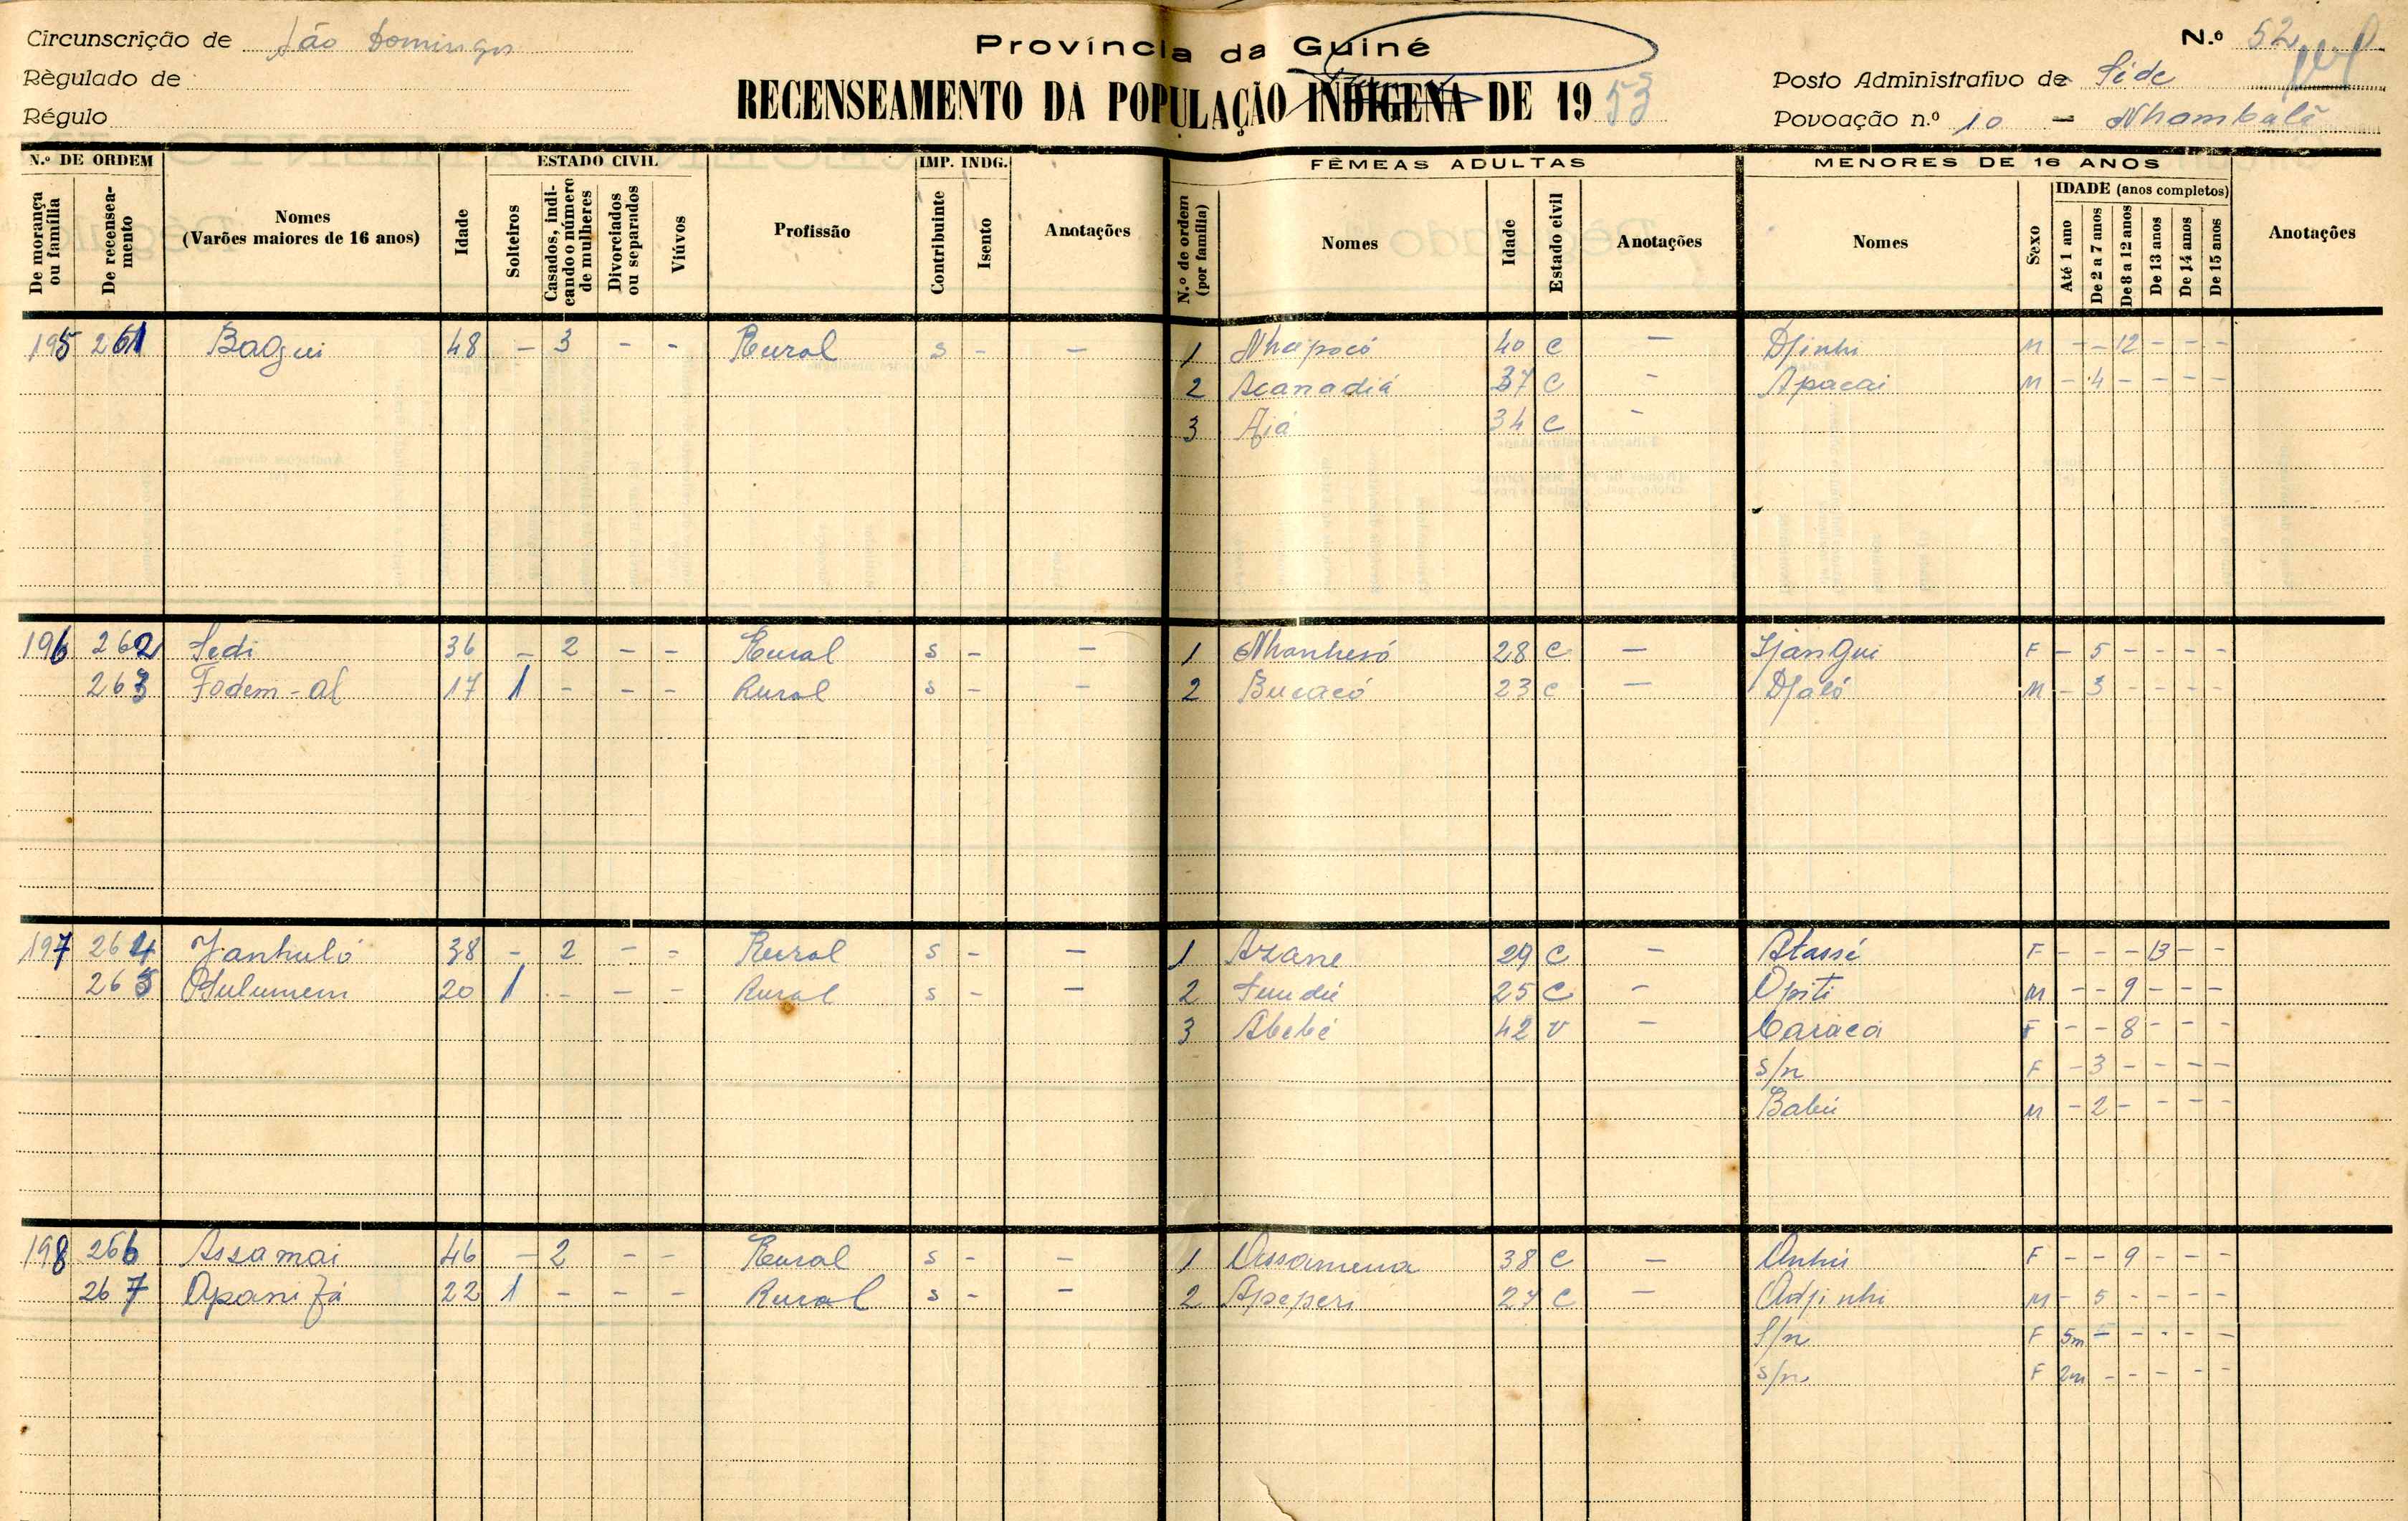 Circunscrição de São Domingos
Règulado de
Régulo
Província da Guiné
RECENSEAMENTO DA POPULAÇÃO INDÍGENA DE 1953
N.º 52
Posto Administrativo de Séde
Povoação n.º 10 - Nhambalã
N.º DE ORDEM ESTADO CIVIL IMP. INDG. FÊMEAS ADULTAS MENORES DE 16 ANOS
De morança ou família De recenseamento Nomes (Varões maiores de 16 anos) Idade Solteiros Casados, indicando o número de mulheres Divorciados ou separados Viúvos Profissão Contribuinte Isento Anotações N.º de ordem (por família) Nomes Idade Estado civil Anotações Nomes Sexo IDADE (anos completos) Até 1 ano De 2 a 7 anos De 8 a 12 anos De 13 anos De 14 anos De 15 anos Anotações
195 261 Bagui 48 - 3 - - Rural s - - 1 Nhapocó 40 C - Djinhi M - - 12 - - -
2 Acanadiá 37 C - Apacai M - 4 - - - -
3 Ajá 34 C -
196 262 Sedi 36 - 2 - - Rural s - - 1 Nhanhesó 28 C - Djangui F - 5 - - - -
263 Fodem-al 17 1 - - - Rural s - - 2 Bucacó 23 C - Djaló M - 3 - - - -
197 264 Janhuló 38 - 2 - - Rural s - - 1 Azane 29 C - Atassé F - - - 13 - -
265 Bulumem 20 1 - - - Rural s - - 2 Sundú 25 C - Opiti M - - 9 - - -
3 Abebé 42 V - Caraca F - - 8 - - -
s/n F - 3 - - - -
Babú M - 2 - - - -
198 266 Assamai 46 - 2 - - Rural s - - 1 Assamena 38 C - Anhú F - - 9 - - -
267 Apanifá 22 1 - - - Rural s - - 2 Apeperi 27 C - Adjinhi M - 5 - - - -
S/n F 5m - - - - -
s/n F 2m - - - - -